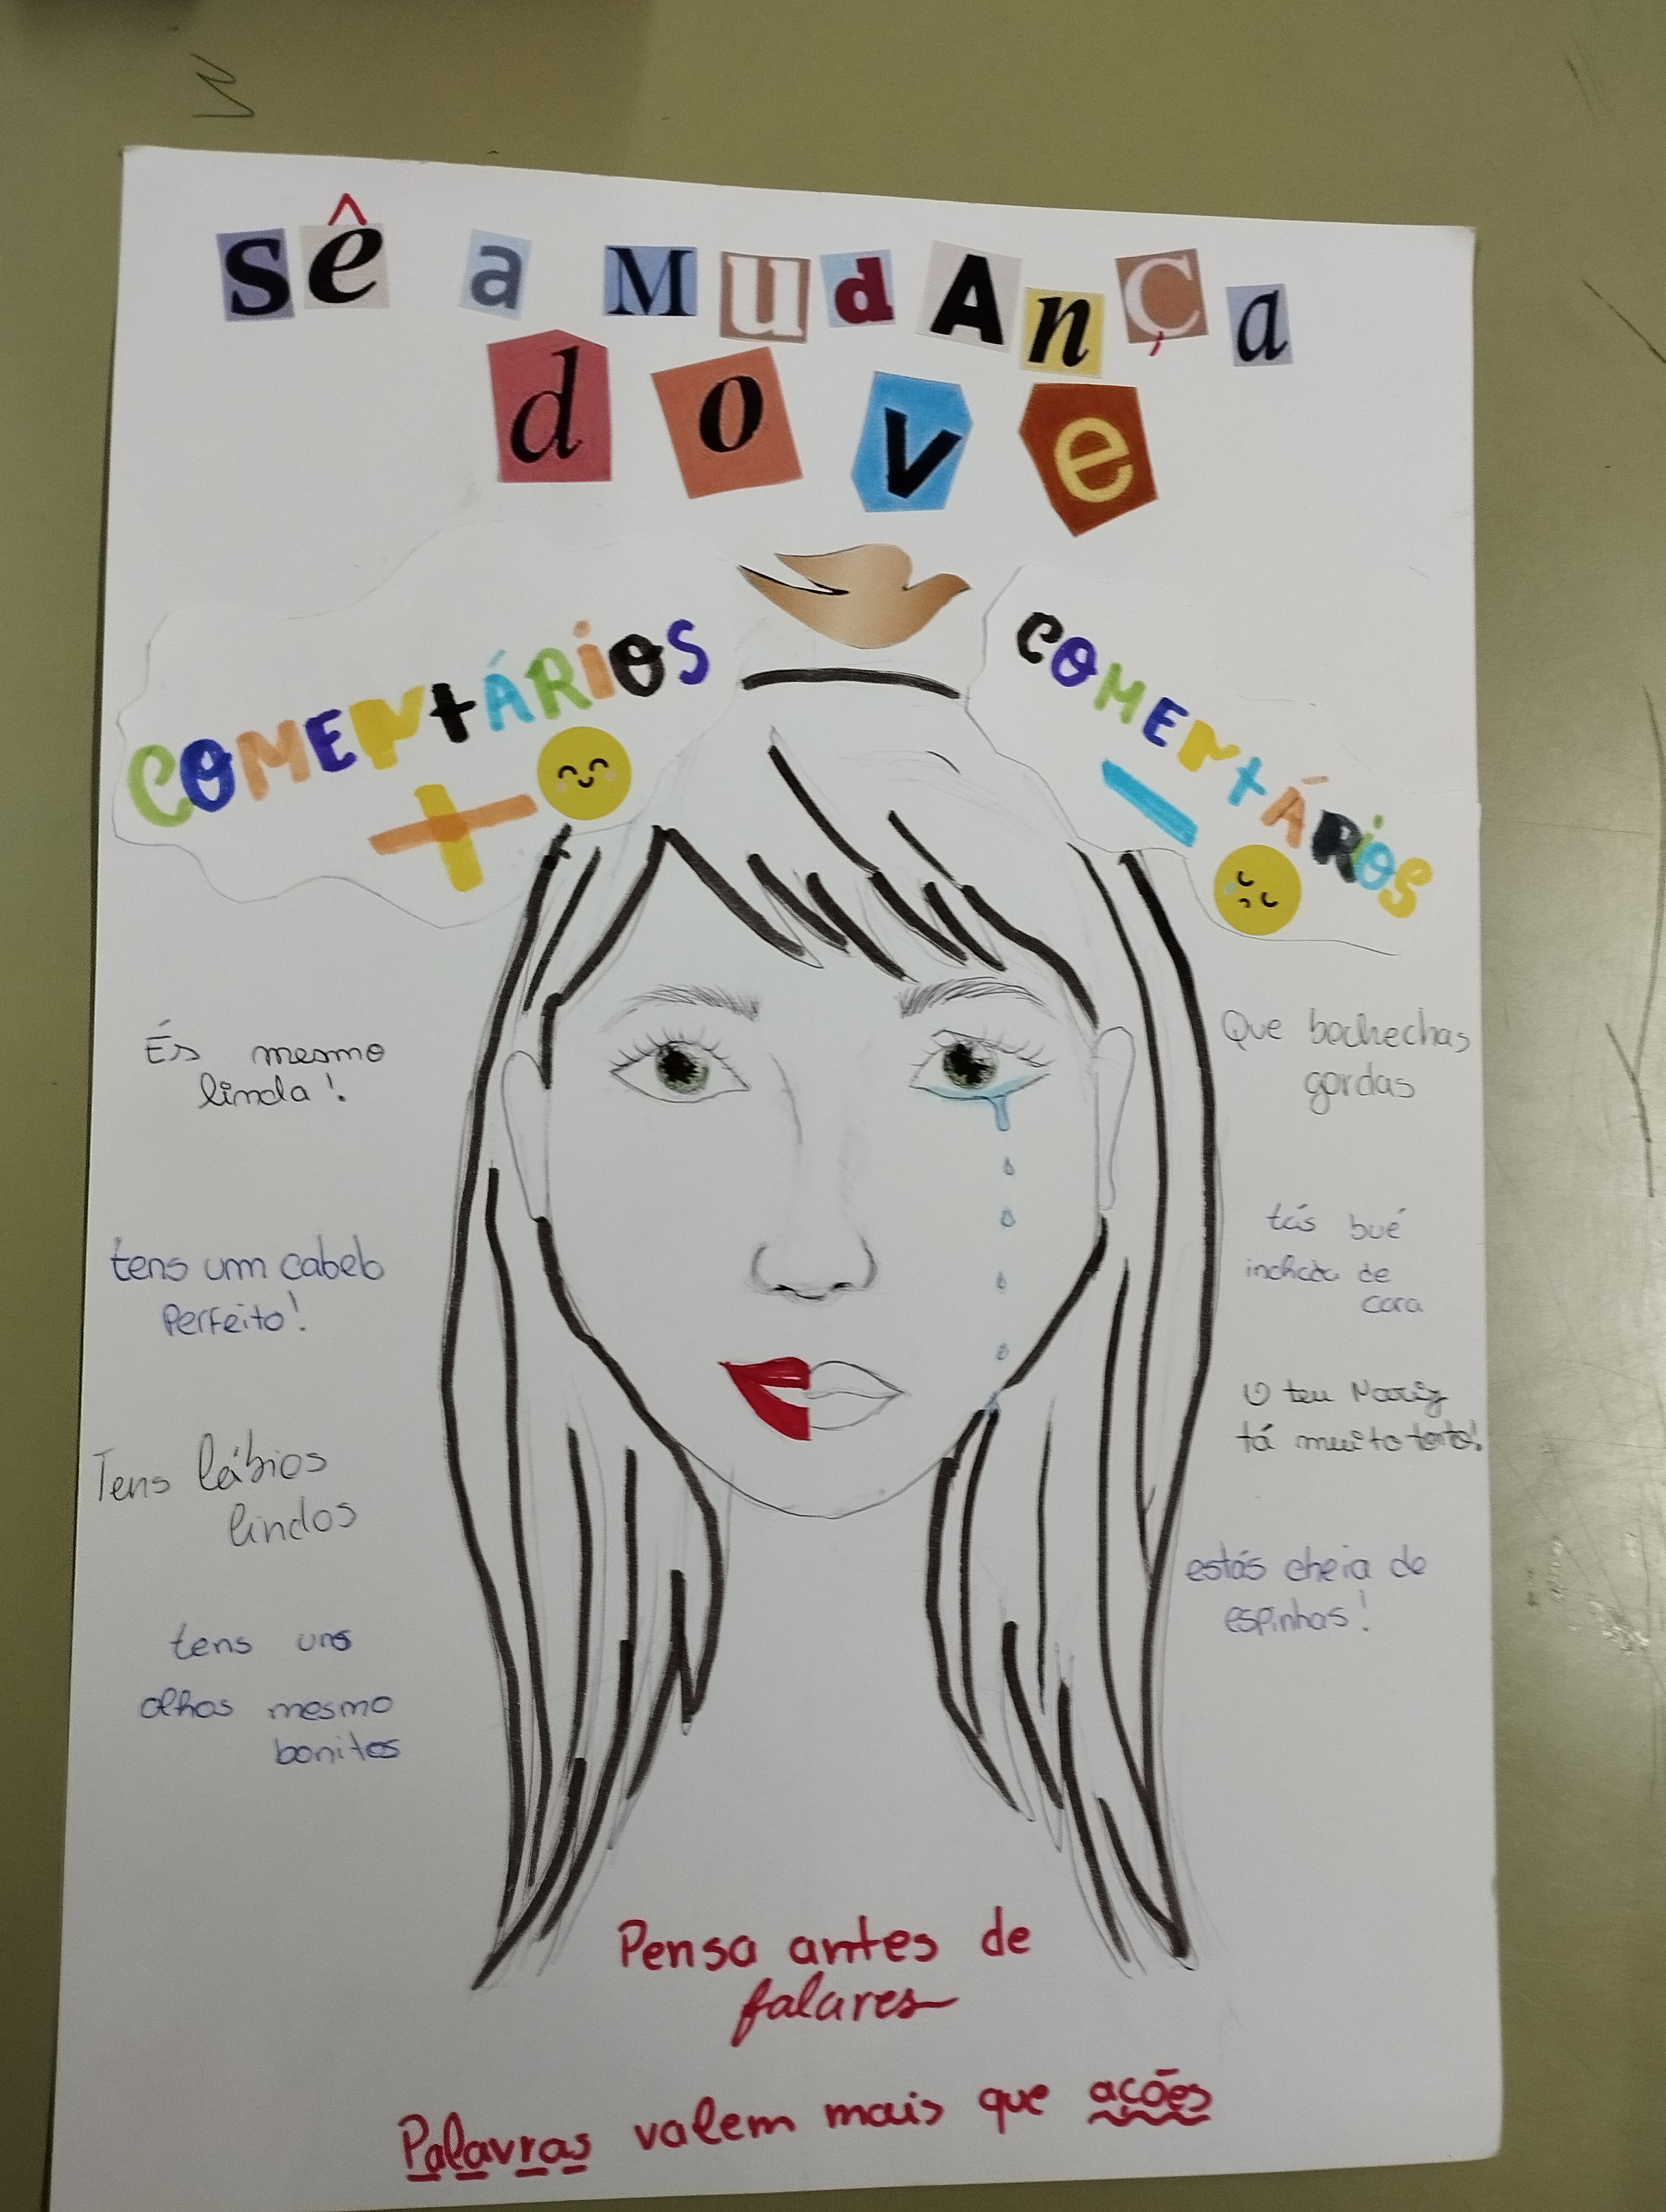 sê a MudAnça
dove
COMENtÁRiOS
+
COMENtÁRiOS
-
És mesmo
linda!
tens um cabelo
Perfeito!
Tens lábios
lindos
tens uns
olhos mesmo
bonitos
Que bochechas
gordas
tás bué
inchada de
cara
O teu Nariz
tá muito torto!
estás cheia de
espinhas!
Pensa antes de
falares
Palavras valem mais que ações